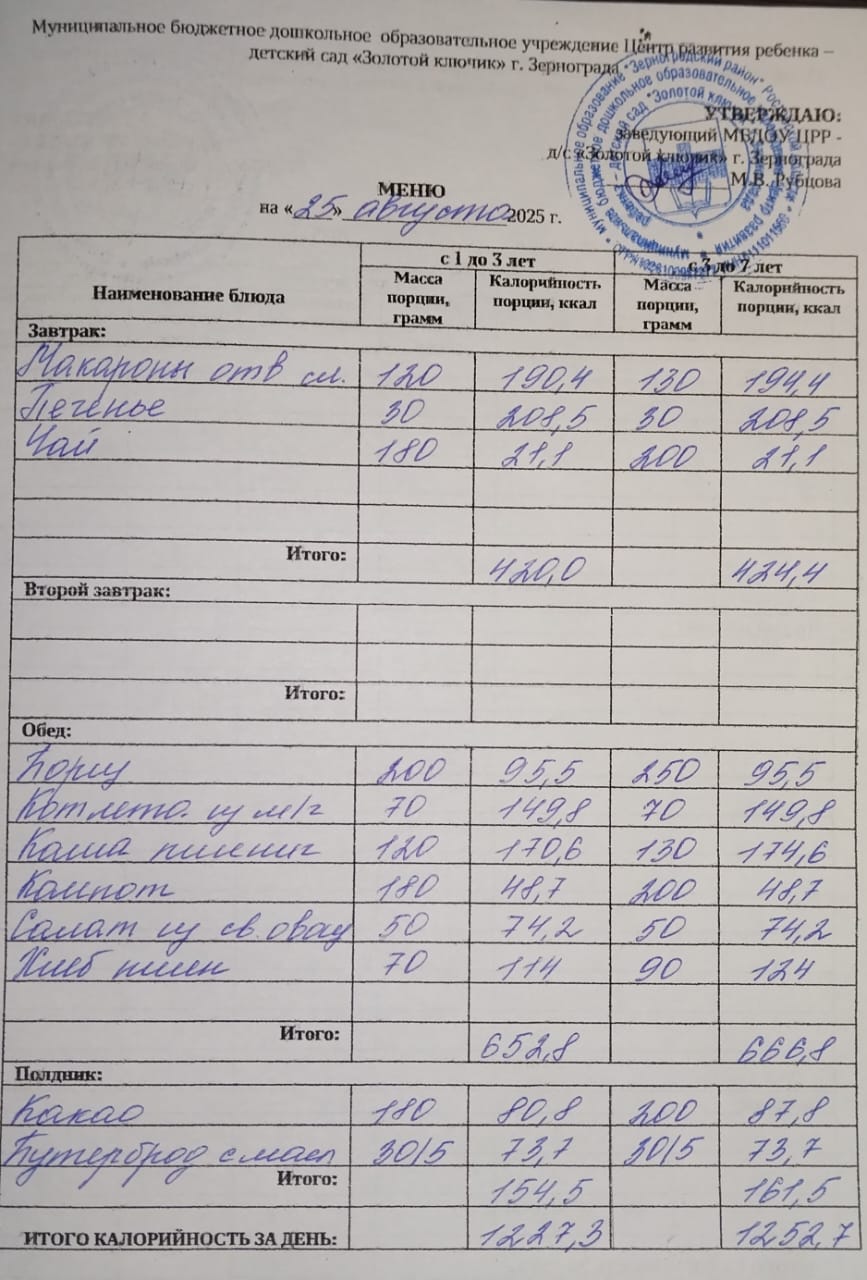 Муниципальное бюджетное дошкольное образовательное учреждение Центр развития ребенка –
детский сад «Золотой ключик» г. Зернограда
УТВЕРЖДАЮ:
заведующий МБДОУ ЦРР -
д/с «Золотой ключик» г. Зернограда
М.В. Рубцова
МЕНЮ
на «25» августа 2025 г.
Наименование блюда
с 1 до 3 лет
с 3 до 7 лет
Масса порции, грамм
Калорийность порции, ккал
Масса порции, грамм
Калорийность порции, ккал
Завтрак:
Макароны отв см. 120 190,4 130 194,4
Печенье 30 208,5 30 208,5
Чай 180 21,1 200 21,1
Итого: 420,0 424,4
Второй завтрак:
Итого:
Обед:
Борщ 200 95,5 250 95,5
Котлета из м/г 70 149,8 70 149,8
Каша пшенич 120 170,6 130 174,6
Компот 180 48,7 200 48,7
Салат из св. овощ 50 74,2 50 74,2
Хлеб пшен 70 114 90 124
Итого: 652,8 666,8
Полдник:
Какао 180 80,8 200 87,8
Бутерброд с масл 30/5 73,7 30/5 73,7
Итого: 154,5 161,5
ИТОГО КАЛОРИЙНОСТЬ ЗА ДЕНЬ: 1227,3 1252,7